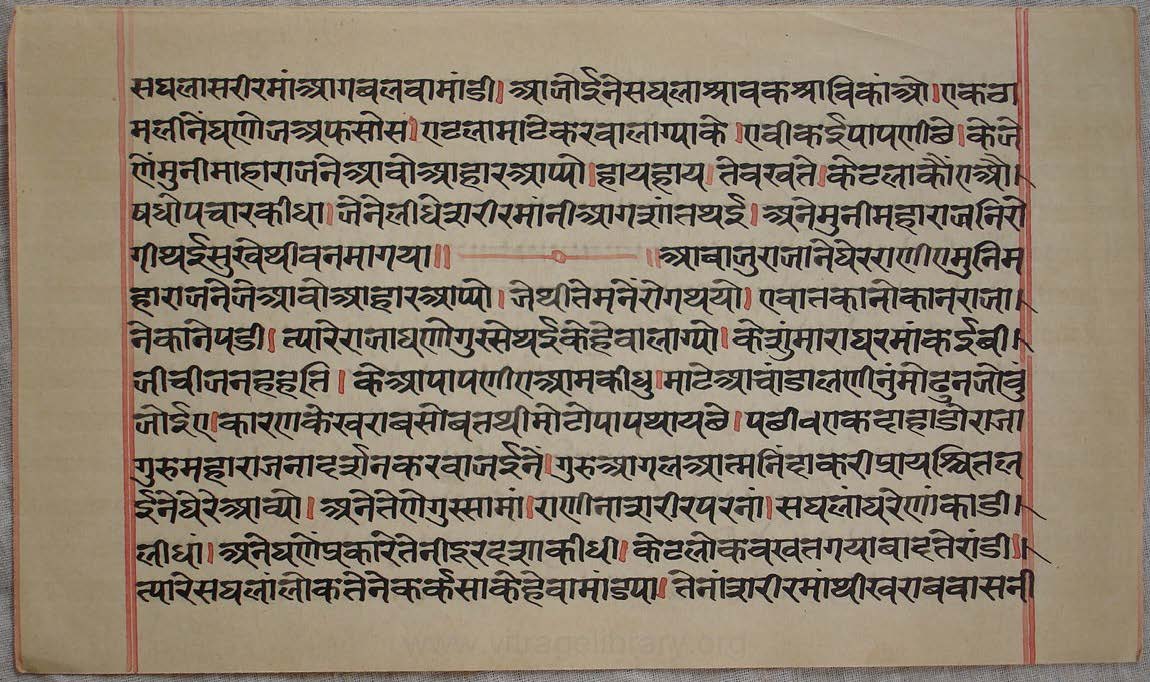 सघलासरीरमांआगबलवामांडी। आजोईनेसघलाश्रावकश्राविकांओ।एकदा
मलीनेंघणोजअफसोस। एटलामाटेकरवालाग्पाके ।एवीकईपापणीछे।केजे
णेंमुनीमाहाराजनेआवोआहारआप्पो।हायहाय। तेवखते।केटलाकौंएऔ।
षधोपचारकीधा। जेनेलीधेशरीरमांनीआगशांतथई।अनेमुनीमहाराजनिरो
गीथईसुखेथीवनमागया॥ ॥आबाजुराजानेघेरराणीएमुनिम
हाराजनेजेआवोआहारआप्पो। जेथीतेमनेंरोगथयो। एवातकानोकानराजा।
नेकानेपडी। त्पारेराजाघणोगुस्सेथईकेहेवालाग्पो।केशुंमाराघरमांकेईबी।
जीचीजनहहति। केआपापणीएआमकीधु।माटेआचांडालणीनुंमोढुनजोवुं
जोईए।कारणकेखराबसोबतथीमोटोपापथायछे। पछीवएकदाहाडोराजा
गुरुमहाराजनादर्शनकरवाजईने।गुरुआगलआत्मनिंदाकरीप्रायश्चितल
ईनेघेरेआव्यो। अनेतेणेगुस्सामां।राणीनाशरीरपरनां।सघलांघरेणांकाडी।
लीधां।अनेघणेंप्रकारेतेनीदुरदशाकीधी। केटलोकवखतगयाबादतेरांडी॥
त्पारेसघलालोकतेनेकर्कसाकेहेवामांडपा। तेनांशरीरमांथीखराबवासनी
www.vitragelibrary.org